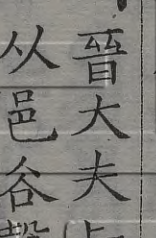 晉大夫
从邑谷